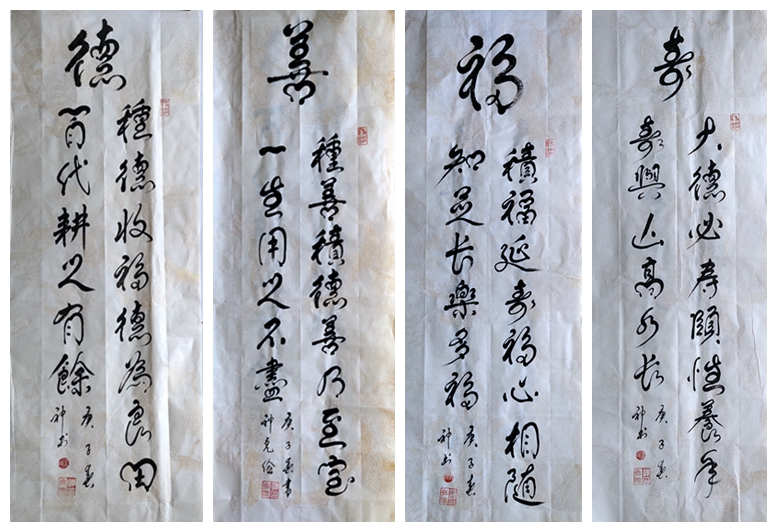 德
種德收福德為良田
百代耕之有餘
庚子春
善
種善積德善乃至寶
一生用之不盡
庚子春書
福
積福延壽福心相隨
知足長樂多福
庚子春
壽
大德必寿頤性養年
壽與山高水長
庚子春